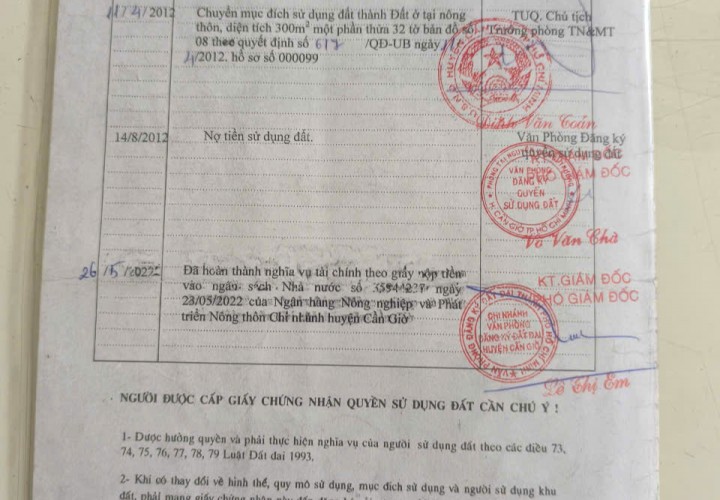 11/4/2012 Chuyển mục đích sử dụng đất thành Đất ở tại nông
thôn, diện tích 300m² một phần thửa 32 tờ bản đồ số
08 theo quyết định số 617 /QĐ-UB ngày
/2012. hồ sơ số 000099
TUQ. Chủ tịch
Trưởng phòng TN&MT
Đinh Văn Toản
14/8/2012 Nợ tiền sử dụng đất.
Văn Phòng Đăng ký
quyền sử dụng đất
PHÓ GIÁM ĐỐC
VĂN PHÒNG
ĐĂNG KÝ
QUYỀN
SỬ DỤNG ĐẤT
H. CẦN GIỜ TP. HỒ CHÍ MINH
Võ Văn Chà
26/5/2022 Đã hoàn thành nghĩa vụ tài chính theo giấy nộp tiền
vào ngân sách Nhà nước số ngày
23/05/2022 của Ngân hàng Nông nghiệp và Phát
triển Nông thôn Chi nhánh huyện Cần Giờ
KT.GIÁM ĐỐC
PHÓ GIÁM ĐỐC
CHI NHÁNH
VĂN PHÒNG
ĐĂNG KÝ ĐẤT ĐAI
HUYỆN CẦN GIỜ
Lê Thị Em
NGƯỜI ĐƯỢC CẤP GIẤY CHỨNG NHẬN QUYỀN SỬ DỤNG ĐẤT CẦN CHÚ Ý !
1- Được hưởng quyền và phải thực hiện nghĩa vụ của người sử dụng đất theo các điều 73,
74, 75, 76, 77, 78, 79 Luật Đất đai 1993.
2- Khi có thay đổi về hình thể, quy mô sử dụng, mục đích sử dụng và người sử dụng khu
đất, phải mang giấy chứng nhận này đến